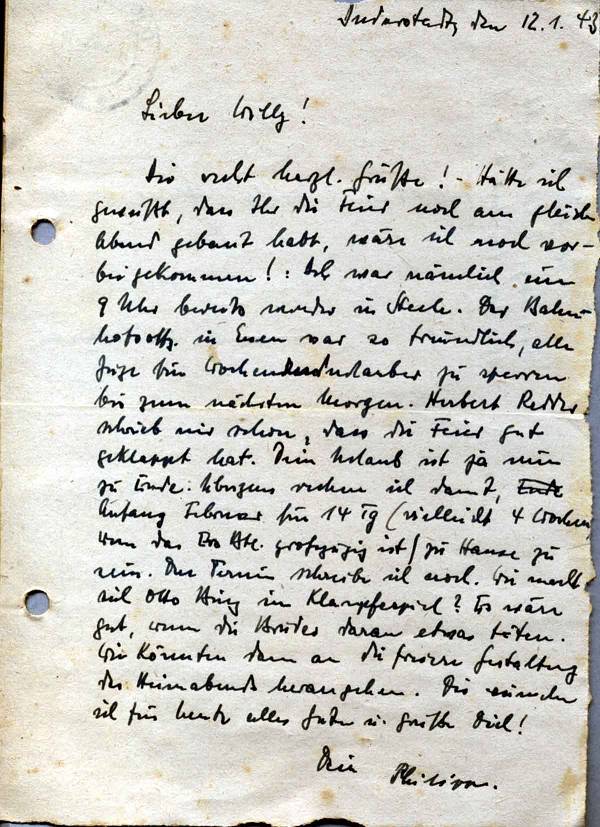 Duderstadt, den 12.1.43
Lieber Willy!
Die recht herzl. Grüße! - Hätte ich
gewußt, dass Ihr die Feier noch am gleichen
Abend gebaut habt, wäre ich noch vor-
beigekommen!: Ich war nämlich um
9 Uhr bereits wieder in Steele. Der Bahn-
hofsoffz. in Essen war so freundlich, alle
Züge für Wochenendurlauber zu sperren
bis zum nächsten Morgen. Herbert Redder
schrieb mir schon, dass die Feier gut
geklappt hat. Dein Urlaub ist ja nun
zu Ende. Übrigens rechne ich damit, Ende
Anfang Februar für 14 Tg (vielleicht 4 Wochen,
wenn das großzügig ist) zu Hause zu
sein. Den Termin schreibe ich noch. Wie macht
sich Otto im Klampfenspiel? Es wäre
gut, wenn die Brüder daran etwas täten.
Wir könnten dann an die freiere Gestaltung
des Heimabends herangehen. Dir wünsche
ich für heute alles Gute u. grüße Dich!
Dein Philipp.